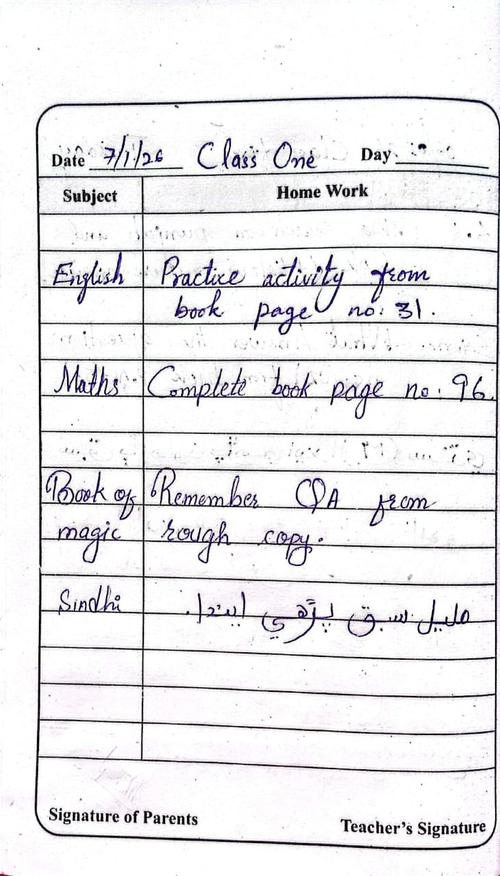 Date 7/1/26 Class One Day
Subject Home Work
English Practice activity from
book page no: 31.
Maths Complete book page no: 96.
Book of Remember Q/A from
magic rough copy.
Sindhi مليل سبق پڙهي ايندا.
Signature of Parents Teacher's Signature